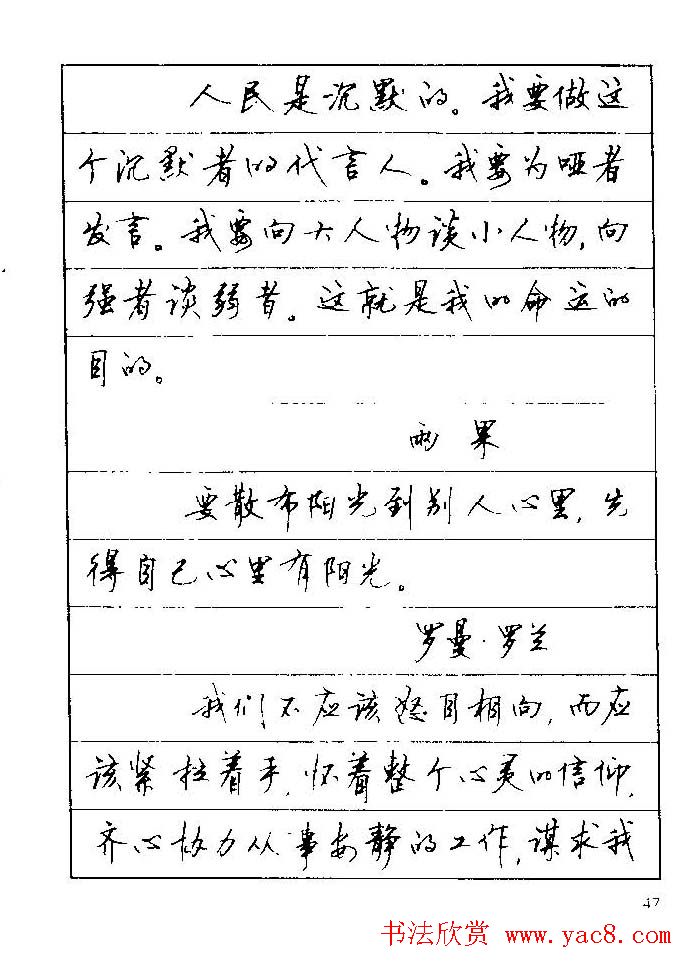 人民是沉默的。我要做这
个沉默者的代言人。我要为哑者
发言。我要向大人物谈小人物,向
强者谈弱者。这就是我的命运的
目的。
雨果
要散布阳光到别人心里,先
得自己心里有阳光。
罗曼·罗兰
我们不应该怒目相向,而应
该紧拉着手,怀着整个心灵的信仰,
齐心协力从事安静的工作,谋求我
47
书法欣赏 www.yac8.com